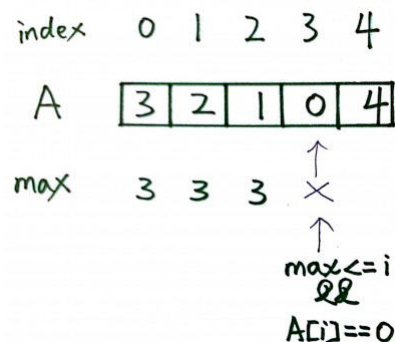 index 0 1 2 3 4
A 3 2 1 0 4
max 3 3 3 ×
max<=i
&&
A[i]==0